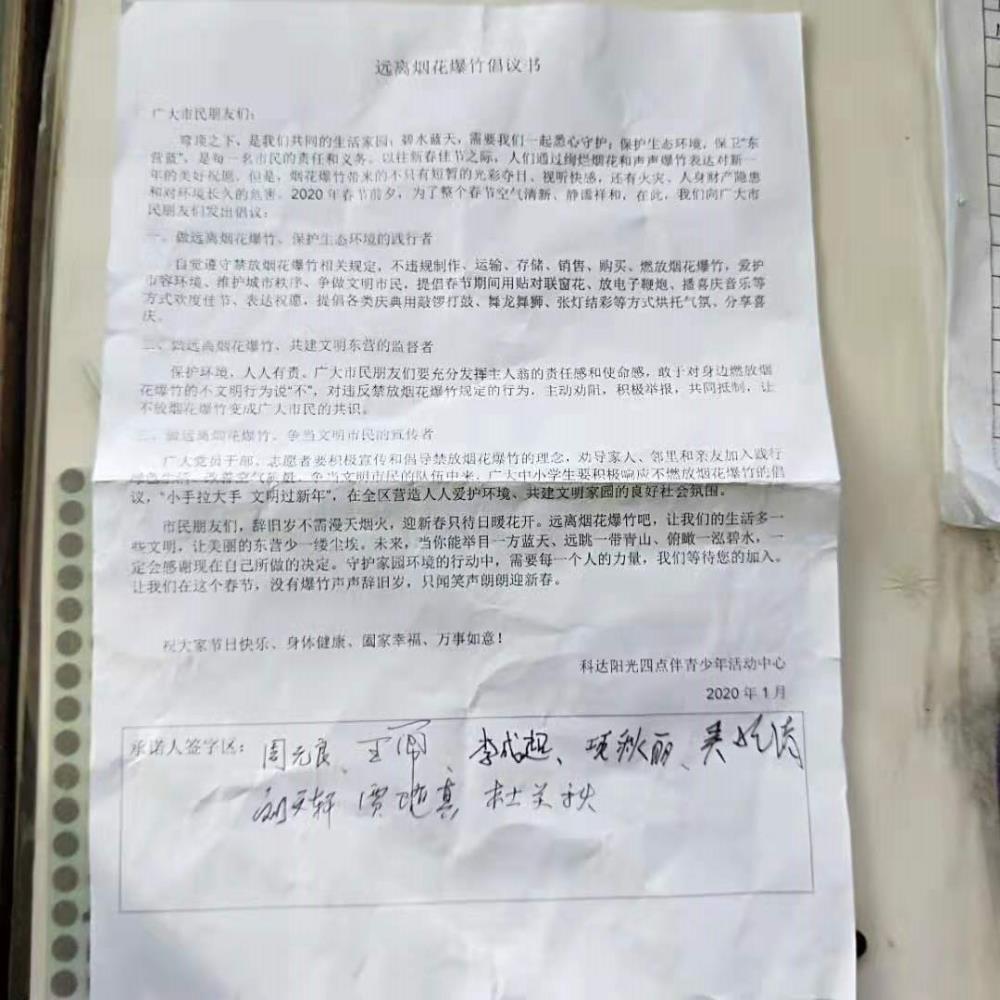 远离烟花爆竹倡议书
广大市民朋友们：
穹顶之下，是我们共同的生活家园；碧水蓝天，需要我们一起悉心守护；保护生态环境，保卫“东
营蓝”，是每一名市民的责任和义务。以往新春佳节之际，人们通过绚烂烟花和声声爆竹表达对新一
年的美好祝愿。但是，烟花爆竹带来的不只有短暂的光彩夺目、视听快感，还有火灾、人身财产隐患
和对环境长久的危害。2020年春节前夕，为了整个春节空气清新、静谧祥和，在此，我们向广大市
民朋友们发出倡议：
一、做远离烟花爆竹、保护生态环境的践行者
自觉遵守禁放烟花爆竹相关规定，不违规制作、运输、存储、销售、购买、燃放烟花爆竹，爱护
市容环境、维护城市秩序、争做文明市民，提倡春节期间用贴对联窗花、放电子鞭炮、播喜庆音乐等
方式欢度佳节、表达祝愿，提倡各类庆典用敲锣打鼓、舞龙舞狮、张灯结彩等方式烘托气氛、分享喜
庆。
二、做远离烟花爆竹、共建文明东营的监督者
保护环境，人人有责。广大市民朋友们要充分发挥主人翁的责任感和使命感，敢于对身边燃放烟
花爆竹的不文明行为说“不”，对违反禁放烟花爆竹规定的行为，主动劝阻，积极举报，共同抵制，让
不放烟花爆竹变成广大市民的共识。
三、做远离烟花爆竹、争当文明市民的宣传者
广大党员干部、志愿者要积极宣传和倡导禁放烟花爆竹的理念，劝导家人、邻里和亲友加入践行
绿色生活、改善空气质量、争当文明市民的队伍中来。广大中小学生要积极响应不燃放烟花爆竹的倡
议，“小手拉大手 文明过新年”，在全区营造人人爱护环境、共建文明家园的良好社会氛围。
市民朋友们，辞旧岁不需漫天烟火，迎新春只待日暖花开。远离烟花爆竹吧，让我们的生活多一
些文明，让美丽的东营少一缕尘埃。未来，当你能举目一方蓝天、远眺一带青山、俯瞰一泓碧水，一
定会感谢现在自己所做的决定。守护家园环境的行动中，需要每一个人的力量，我们等待您的加入。
让我们在这个春节，没有爆竹声声辞旧岁，只闻笑声朗朗迎新春。
祝大家节日快乐、身体健康、阖家幸福、万事如意！
科达阳光四点伴青少年活动中心
2020年1月
承诺人签字区：周元良、王、李成起、项秋丽、
刘文轩 贾 真 杜兰秋